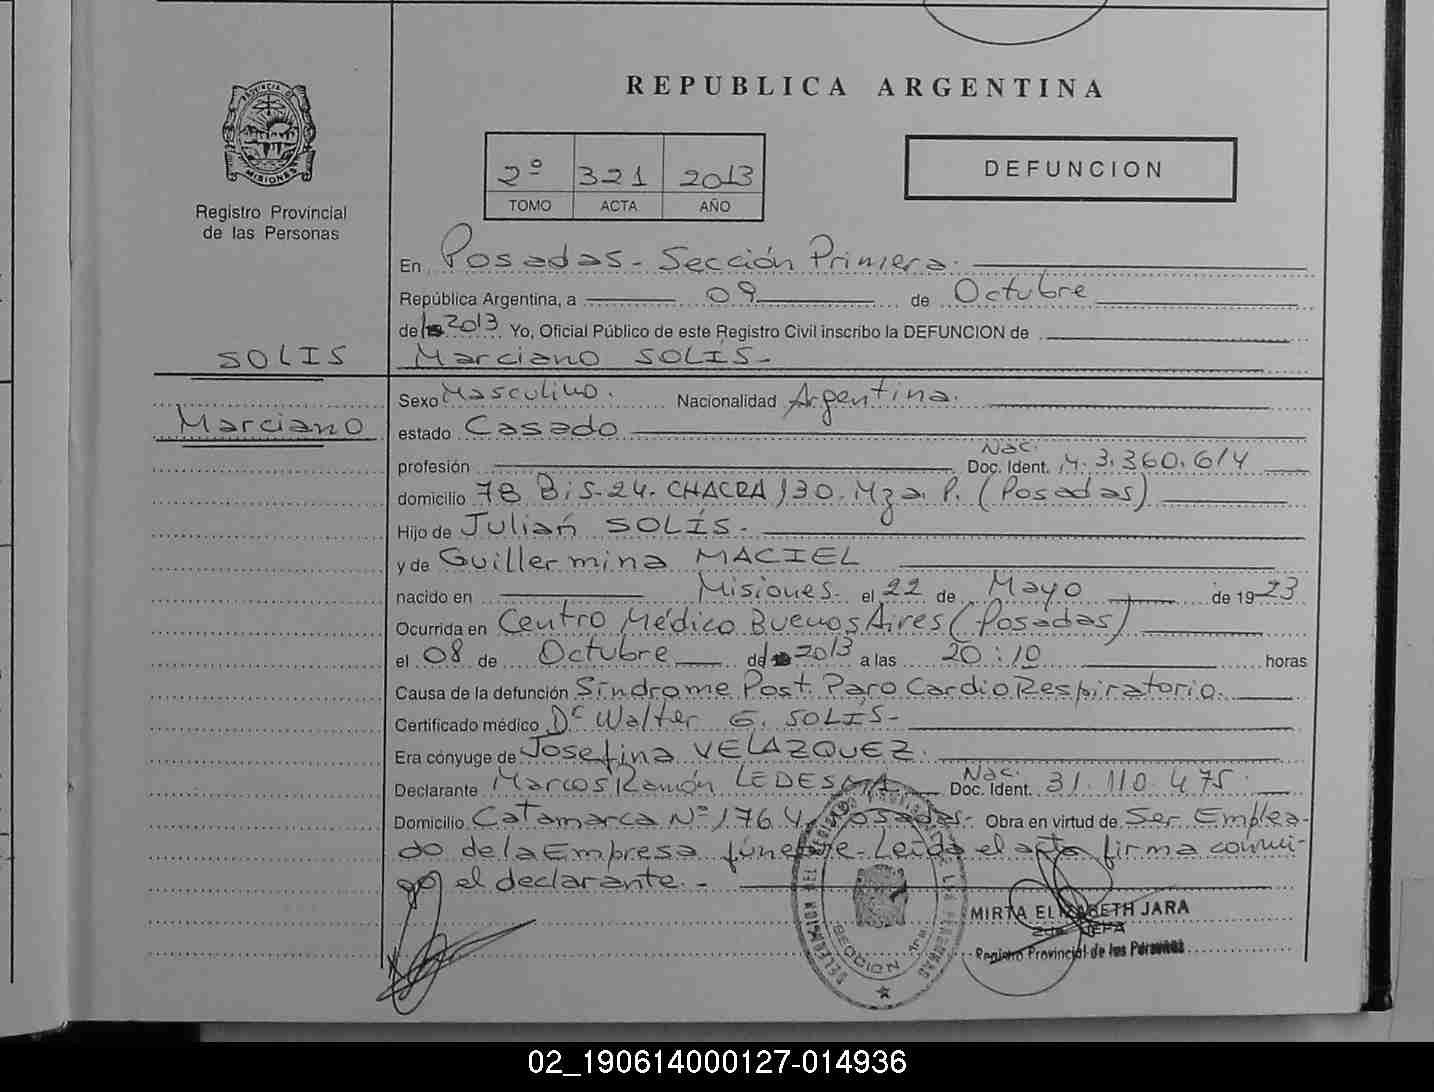 REPUBLICA ARGENTINA
PROVINCIA DE MISIONES
Registro Provincial
de las Personas
2º 321 2013
TOMO ACTA AÑO
DEFUNCION
En Posadas - Sección Primera.
República Argentina, a 09 de Octubre
de 2013 Yo, Oficial Público de este Registro Civil inscribo la DEFUNCION de
SOLIS
Marciano SOLÍS-
Sexo Masculino. Nacionalidad Argentina.
Marciano
estado Casado
profesión Doc. Ident. Nac. M. 3.360.614
domicilio 78 Bis-24. CHACRA 130. Mza. P. (Posadas)
Hijo de Julián SOLÍS.
y de Guillermina MACIEL
nacido en Misiones. el 22 de Mayo de 1923
Ocurrida en Centro Médico Buenos Aires (Posadas)
el 08 de Octubre de 2013 a las 20:10 horas
Causa de la defunción Síndrome Post. Paro CardioRespiratorio.
Certificado médico Dr Walter G. SOLÍS-
Era cónyuge de Josefina VELAZQUEZ.
Declarante Marcos Ramón LEDESMA Doc. Ident. Nac. 31.110.475
Domicilio Catamarca Nº 1764, Posadas- Obra en virtud de Ser Emplea-
do de la Empresa fúnebre- Leída el acta firma conmi-
go el declarante.-
MIRTA ELIZABETH JARA
2da. JEFA
Registro Provincial de las Personas
SECCION 1ra.
02_190614000127-014936